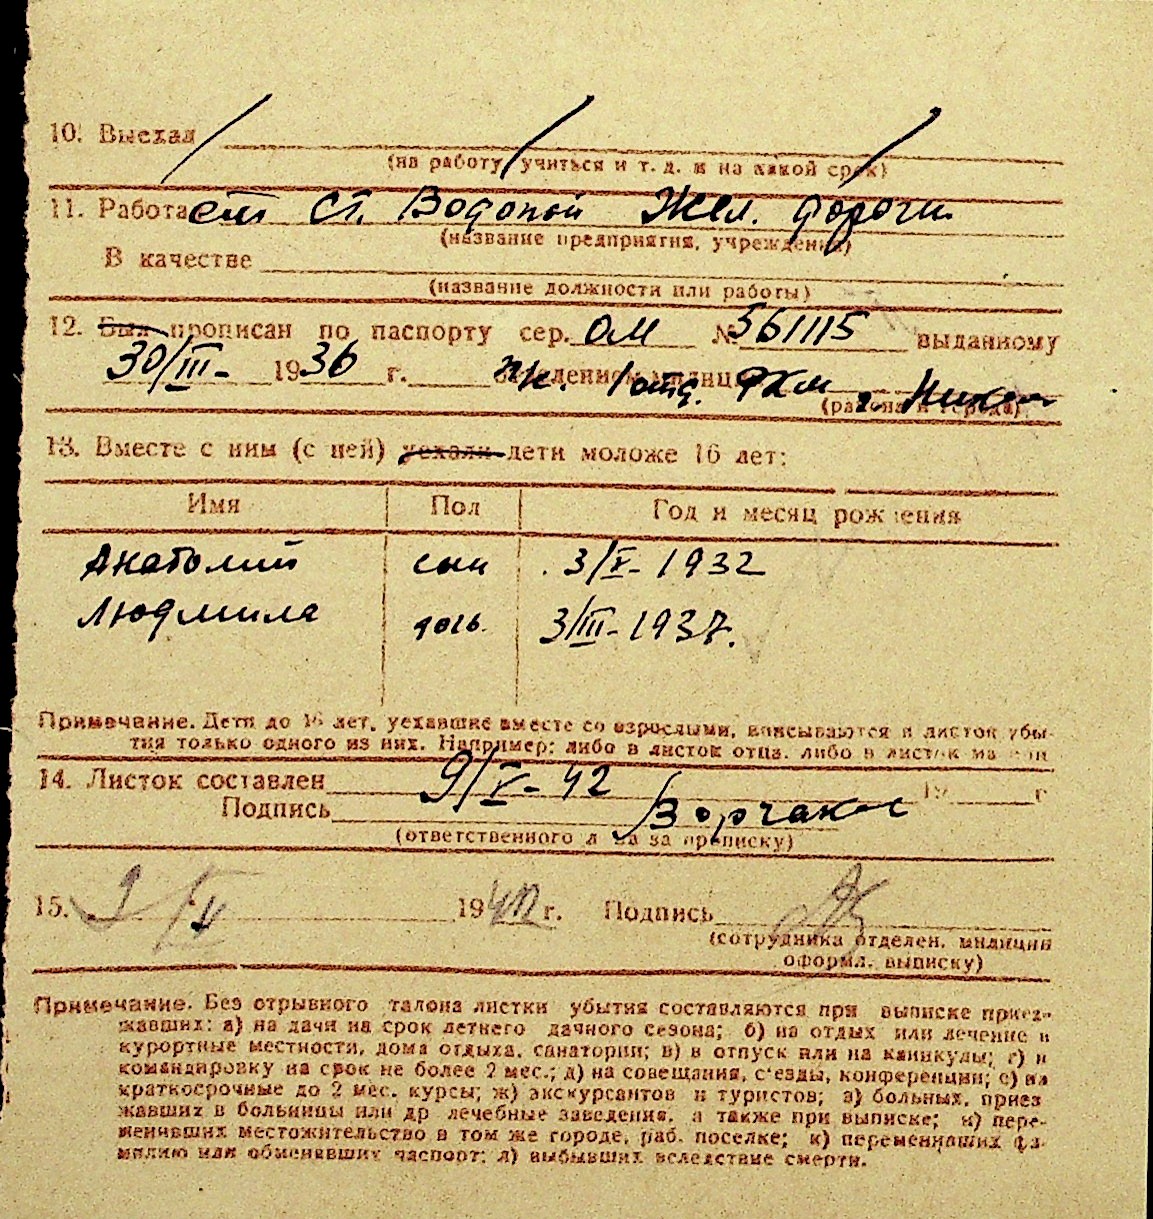 10. Выехал
(на работу, учиться и т. д. и на какой срок)
11. Работает ст. Водопой Жел. дороги
(название предприятия, учреждения)
В качестве
(название должности или работы)
12. Был прописан по паспорту сер. ОМ № 561115 выданному
30/III- 1936 г. 1 отд.
(района и города)
13. Вместе с ним (с ней) уехали дети моложе 16 лет:
Имя Пол Год и месяц рождения
Анатолий сын 3/V-1932
Людмила дочь 3/III-1937.
Примечание. Дети до 16 лет, уехавшие вместе со взрослыми, вписываются в листок убы-
тия только одного из них. Например: либо в листок отца, либо в листок ма
14. Листок составлен 9/V-42 19 г
Подпись
(ответственного л за прописку)
15. 9/V 1942 г. Подпись
(сотрудника отделен. милиции
оформл. выписку)
Примечание. Без отрывного талона листки убытия составляются при выписке приез-
жавших: а) на дачи на срок летнего дачного сезона; б) на отдых или лечение в
курортные местности, дома отдыха, санатории; в) в отпуск или на каникулы; г) в
командировку на срок не более 2 мес.; д) на совещания, с'езды, конференции; е) на
краткосрочные до 2 мес. курсы; ж) экскурсантов и туристов; з) больных, приез
жавших в больницы или др лечебные заведения, а также при выписке; и) пере-
менивших местожительство в том же городе, раб. поселке; к) переменивших фа-
милию или обменявших паспорт; л) выбывших вследствие смерти.